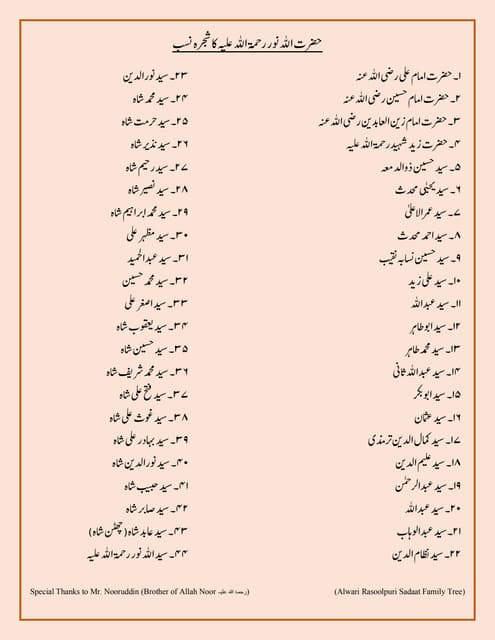 حضرت اللہ نور رحمۃ اللہ علیہ کا شجرہ نسب
۱۔ حضرت امام علی رضی اللہ عنہ
۲۔ حضرت امام حسین رضی اللہ عنہ
۳۔ حضرت امام زین العابدین رضی اللہ عنہ
۴۔ حضرت زید شہید رحمۃ اللہ علیہ
۵۔ سید حسین ذوالدمعہ
۶۔ سید یحییٰ محدث
۷۔ سید عمر الاعلیٰ
۸۔ سید احمد محدث
۹۔ سید حسین نسابہ نقیب
۱۰۔ سید علی زید
۱۱۔ سید عبداللہ
۱۲۔ سید ابو طاہر
۱۳۔ سید محمد طاہر
۱۴۔ سید عبداللہ ثانی
۱۵۔ سید ابو بکر
۱۶۔ سید عثمان
۱۷۔ سید کمال الدین ترمذی
۱۸۔ سید علیم الدین
۱۹۔ سید عبدالرحمٰن
۲۰۔ سید عبداللہ
۲۱۔ سید عبدالوہاب
۲۲۔ سید نظام الدین
۲۳۔ سید نور الدین
۲۴۔ سید محمد شاہ
۲۵۔ سید حرمت شاہ
۲۶۔ سید نذیر شاہ
۲۷۔ سید رحیم شاہ
۲۸۔ سید نصیر شاہ
۲۹۔ سید محمد ابراہیم شاہ
۳۰۔ سید مظہر علی
۳۱۔ سید عبدالحمید
۳۲۔ سید محمد حسین
۳۳۔ سید اصغر علی
۳۴۔ سید یعقوب شاہ
۳۵۔ سید حسین شاہ
۳۶۔ سید محمد شریف شاہ
۳۷۔ سید فتح علی شاہ
۳۸۔ سید غوث علی شاہ
۳۹۔ سید بہادر علی شاہ
۴۰۔ سید نور الدین شاہ
۴۱۔ سید حبیب شاہ
۴۲۔ سید صابر شاہ
۴۳۔ سید عابد شاہ (چھٹن شاہ)
۴۴۔ سید اللہ نور رحمۃ اللہ علیہ
Special Thanks to Mr. Nooruddin (Brother of Allah Noor رحمۃ اللہ علیہ)
(Alwari Rasoolpuri Sadaat Family Tree)